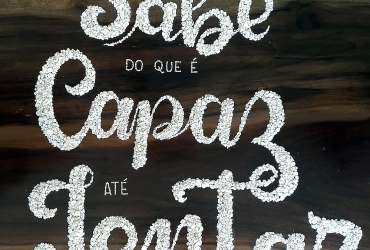 Sabe
DO QUE É
Capaz
ATÉ
Tentar